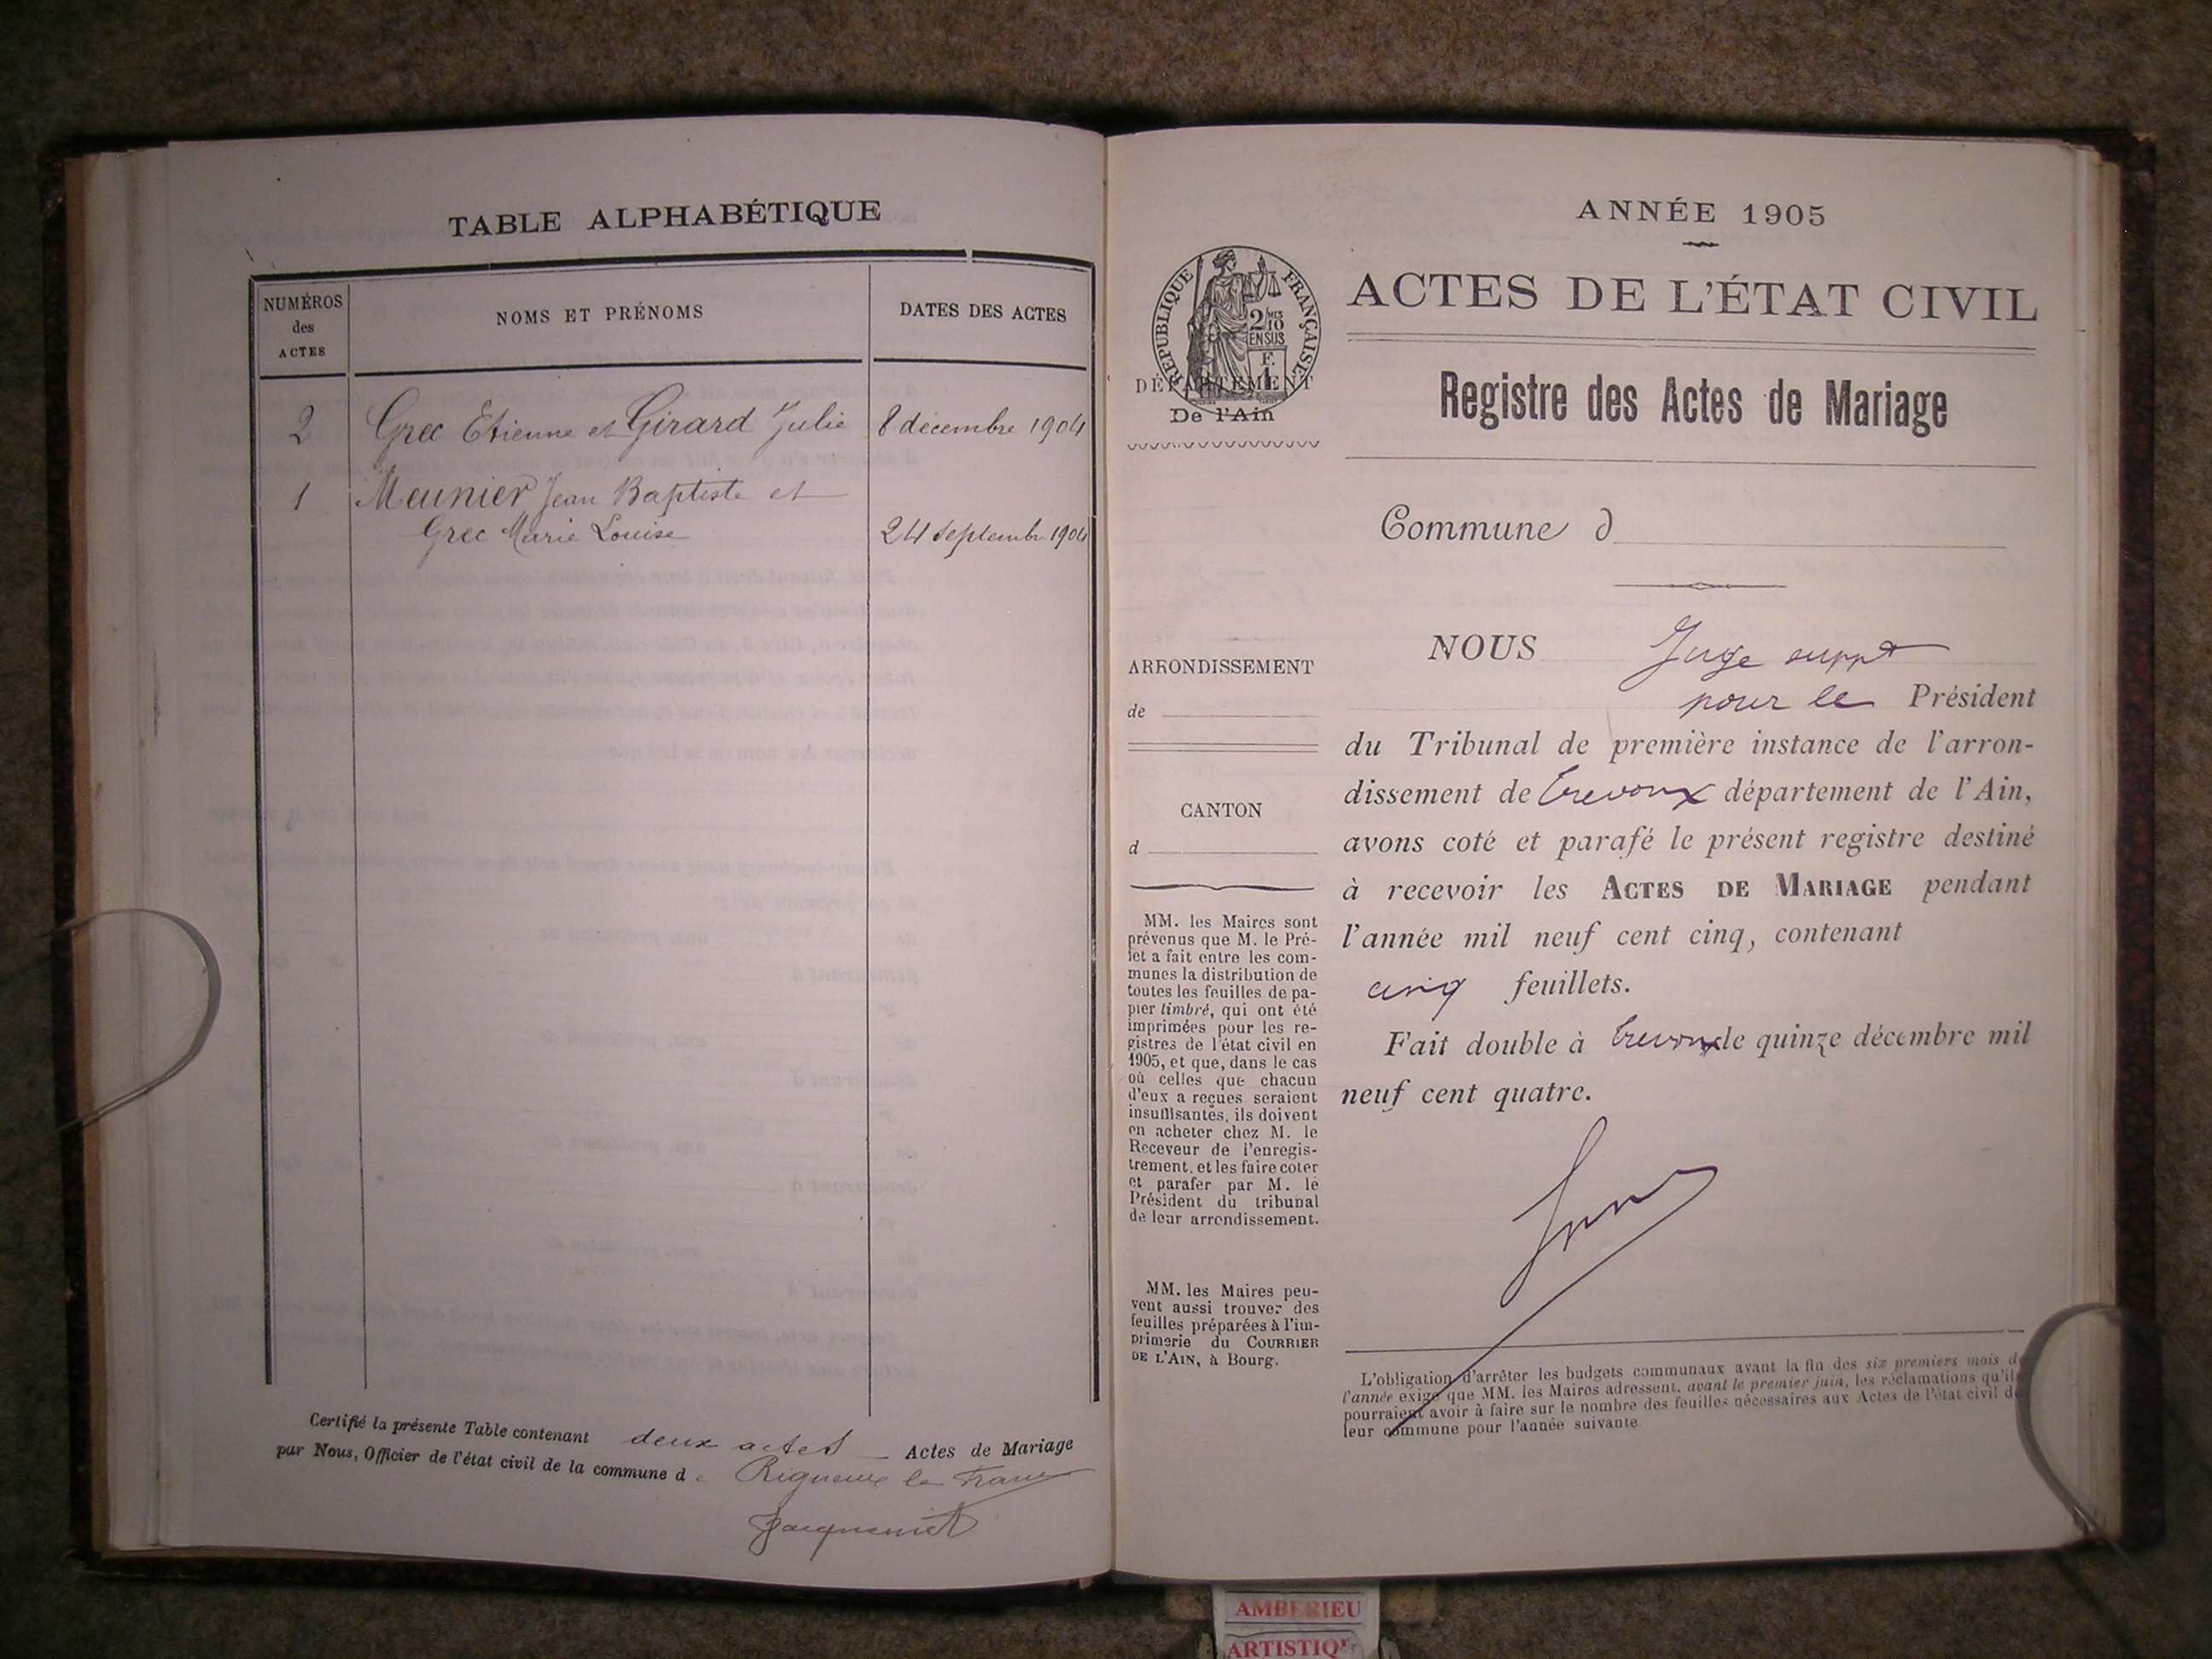 TABLE ALPHABÉTIQUE
NUMÉROS
des
ACTES
NOMS ET PRÉNOMS
DATES DES ACTES
2 Grec Etienne et Girard Julie 8 décembre 1904
1 Meunier Jean Baptiste et
Grec Marie Louise 24 Septembr 1904
Certifié la présente Table contenant deux actes Actes de Mariage
par Nous, Officier de l'état civil de la commune de Rigneux le Franc
ANNÉE 1905
ACTES DE L'ÉTAT CIVIL
RÉPUBLIQUE FRANÇAISE
2/10 MES
EN SUS
F.
1
DÉPARTEMENT
De l'Ain
Registre des Actes de Mariage
Commune d
ARRONDISSEMENT
de
CANTON
d
MM. les Maires sont
prévenus que M. le Pré-
fet a fait entre les com-
munes la distribution de
toutes les feuilles de pa-
pier timbré, qui ont été
imprimées pour les re-
gistres de l'état civil en
1905, et que, dans le cas
où celles que chacun
d'eux a reçues seraient
insuffisantes, ils doivent
en acheter chez M. le
Receveur de l'enregis-
trement, et les faire coter
et parafer par M. le
Président du tribunal
de leur arrondissement.
MM. les Maires peu-
vent aussi trouver des
feuilles préparées à l'im-
primerie du COURRIER
DE L'AIN, à Bourg.
NOUS Juge suppt
pour le Président
du Tribunal de première instance de l'arron-
dissement de Trevoux département de l'Ain,
avons coté et parafé le présent registre destiné
à recevoir les ACTES DE MARIAGE pendant
l'année mil neuf cent cinq, contenant
cinq feuillets.
Fait double à Trevoux le quinze décembre mil
neuf cent quatre.
L'obligation d'arrêter les budgets communaux avant la fin des six premiers mois de
l'année exige que MM. les Maires adressent, avant le premier juin, les réclamations qu'ils
pourraient avoir à faire sur le nombre des feuilles nécessaires aux Actes de l'état civil de
leur commune pour l'année suivante
AMBERIEU
ARTISTIQ